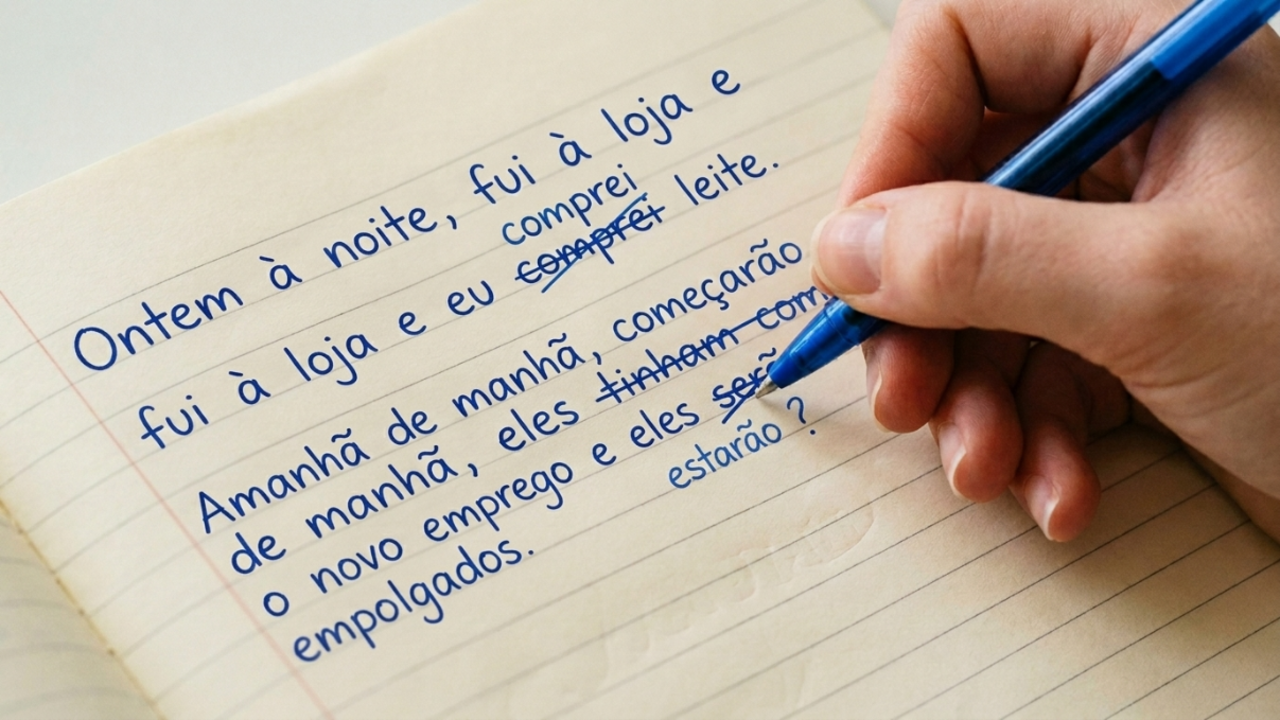 Ontem à noite, fui à loja e
comprei
fui à loja e eu comprei leite.
Amanhã de manhã, começarão
de manhã, eles tinham
o novo emprego e eles
estarão ?
empolgados.